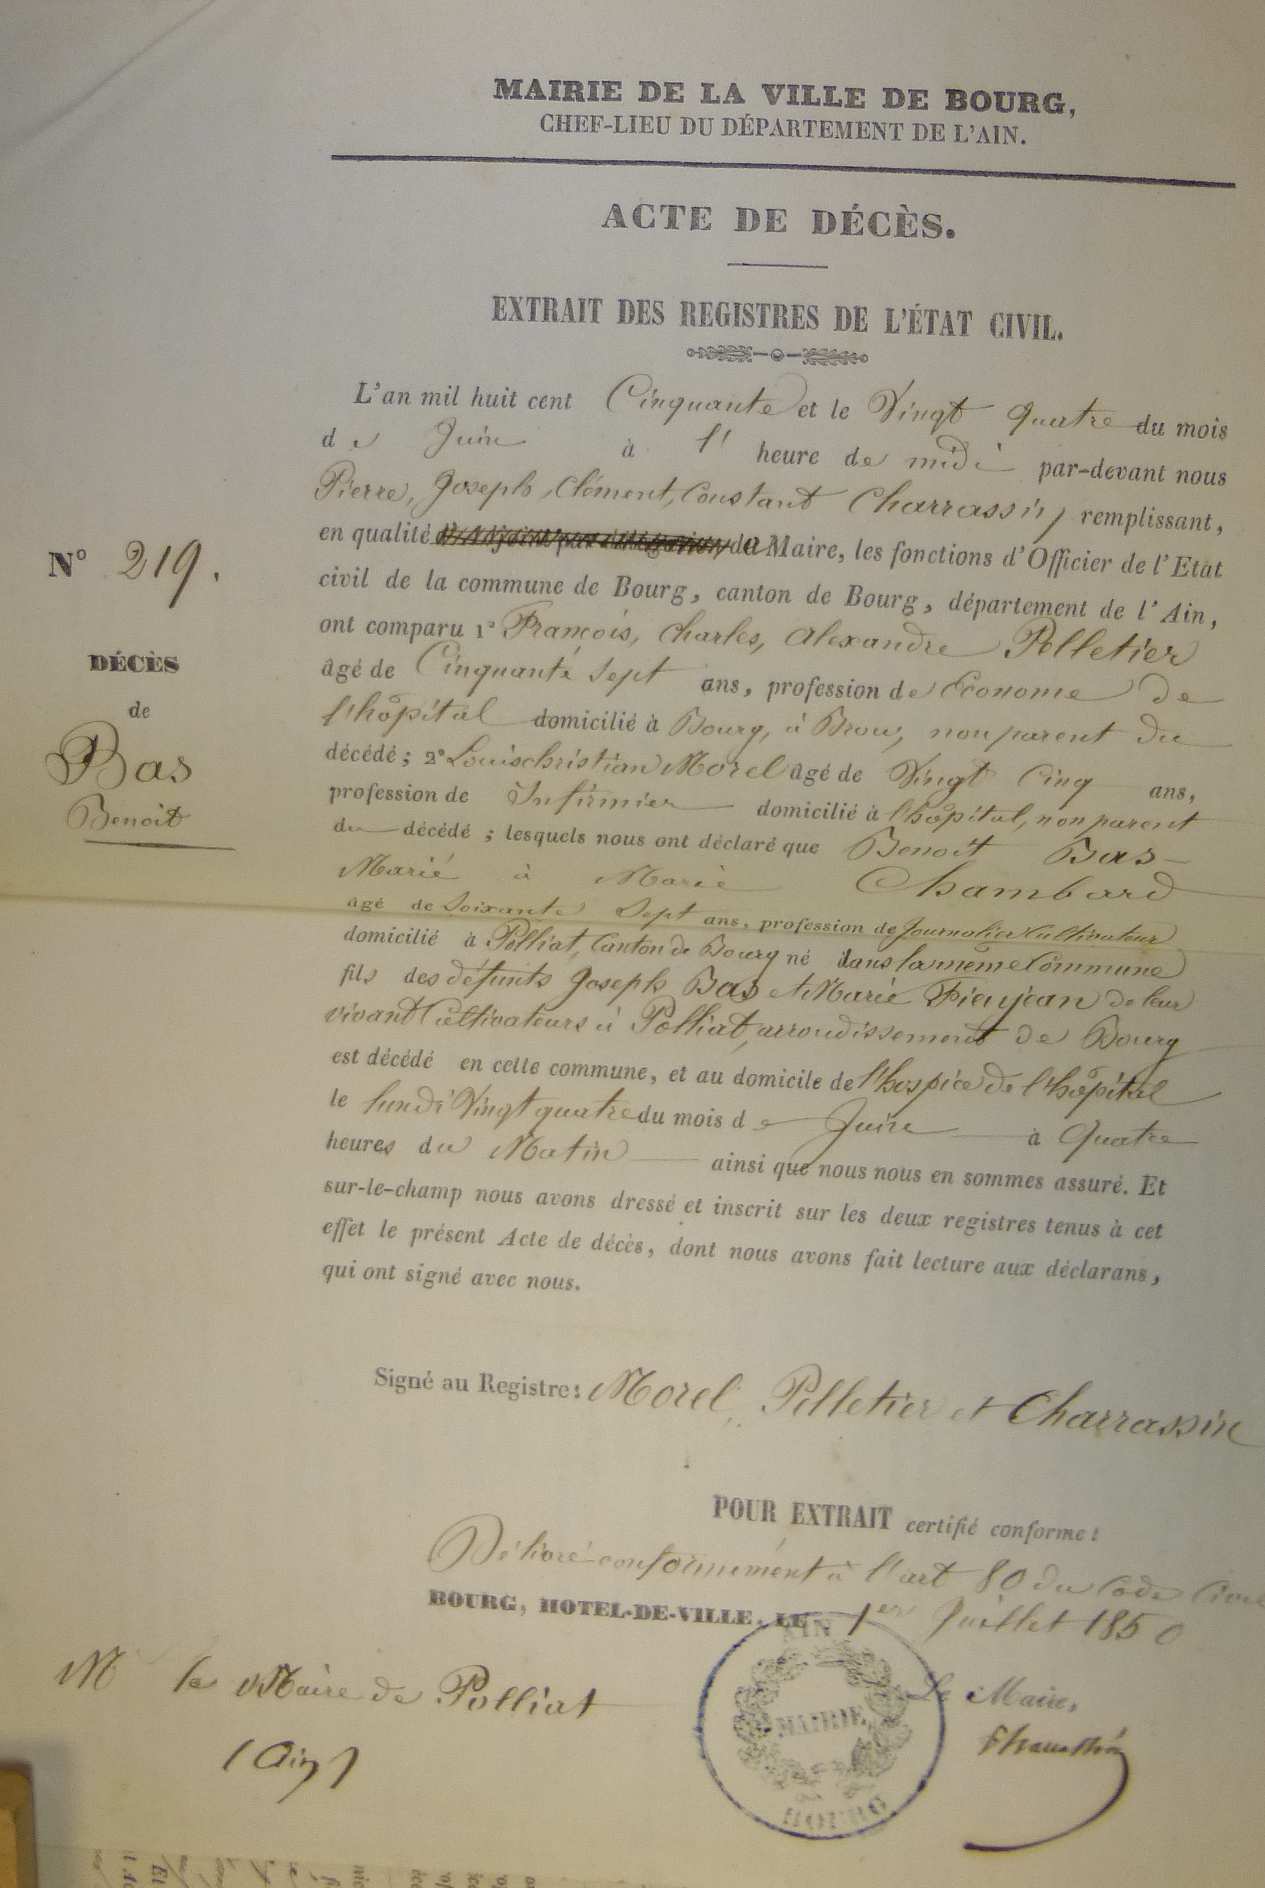 MAIRIE DE LA VILLE DE BOURG,
CHEF-LIEU DU DÉPARTEMENT DE L'AIN.
ACTE DE DÉCÈS.
EXTRAIT DES REGISTRES DE L'ÉTAT CIVIL.
L'an mil huit cent Cinquante et le Vingt quatre du mois
de Juin à l' heure de midi par-devant nous
Pierre, Joseph, Clément, Constant Charrassin, remplissant,
en qualité de Maire, les fonctions d'Officier de l'Etat
civil de la commune de Bourg, canton de Bourg, département de l'Ain,
ont comparu 1° François, Charles, Alexandre Pelletier
âgé de Cinquante sept ans, profession de Econome de
l'hôpital domicilié à Bourg, à Brou, non parent du
décédé; 2° Louis christian Morel âgé de Vingt Cinq ans,
profession de Infirmier domicilié à l'hôpital, non parent
du décédé; lesquels nous ont déclaré que Benoit Bas
Marié à Marie Chambard
âgé de Soixante Sept ans, profession de Journalier Cultivateur
domicilié à Polliat, Canton de Bourg né dans la même Commune
fils des défunts Joseph Bas et Marie Fieujean de leur
vivant Cultivateurs à Polliat, arrondissement de Bourg
est décédé en cette commune, et au domicile de l'hospice de l'hôpital
le lundi Vingt quatre du mois de Juin à Quatre
heures du Matin ainsi que nous nous en sommes assuré. Et
sur-le-champ nous avons dressé et inscrit sur les deux registres tenus à cet
effet le présent Acte de décès, dont nous avons fait lecture aux déclarans,
qui ont signé avec nous.
N° 219.
DÉCÈS
de
Bas
Benoit
Signé au Registre: Morel, Pelletier et Charrassin
POUR EXTRAIT certifié conforme:
Délivré conformément à l'art 80 du Code Civil
BOURG, HOTEL-DE-VILLE, LE 1er Juillet 1850
M le Maire de Polliat
(Ain)
Le Maire,
AIN
MAIRIE
BOURG